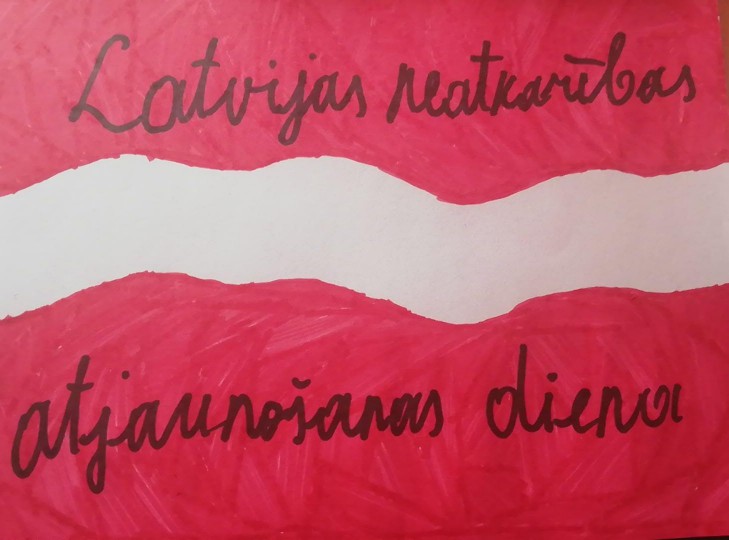 Latvijas neatkarības
atjaunošanas diena